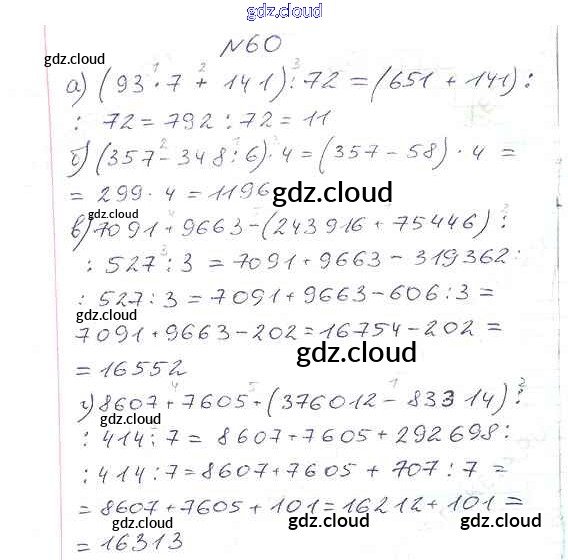 gdz.cloud
gdz.cloud gdz.cloud
№60
а) (93 · 7 + 141) : 72 = (651 + 141) :
: 72 = 792 : 72 = 11
б) (357 - 348 : 6) · 4 = (357 - 58) · 4 =
= 299 · 4 = 1196 gdz.cloud
gdz.cloud
в) 7091 + 9663 - (243916 + 75446) :
: 527 : 3 = 7091 + 9663 - 319362 :
: 527 : 3 = 7091 + 9663 - 606 : 3 =
7091 + 9663 - 202 = 16754 - 202 =
= 16552 gdz.cloud
г) 8607 + 7605 + (376012 - 83314) :
gdz.cloud
: 414 : 7 = 8607 + 7605 + 292698 :
: 414 : 7 = 8607 + 7605 + 707 : 7 =
= 8607 + 7605 + 101 = 16212 + 101 =
gdz.cloud gdz.cloud gdz.cloud
= 16313